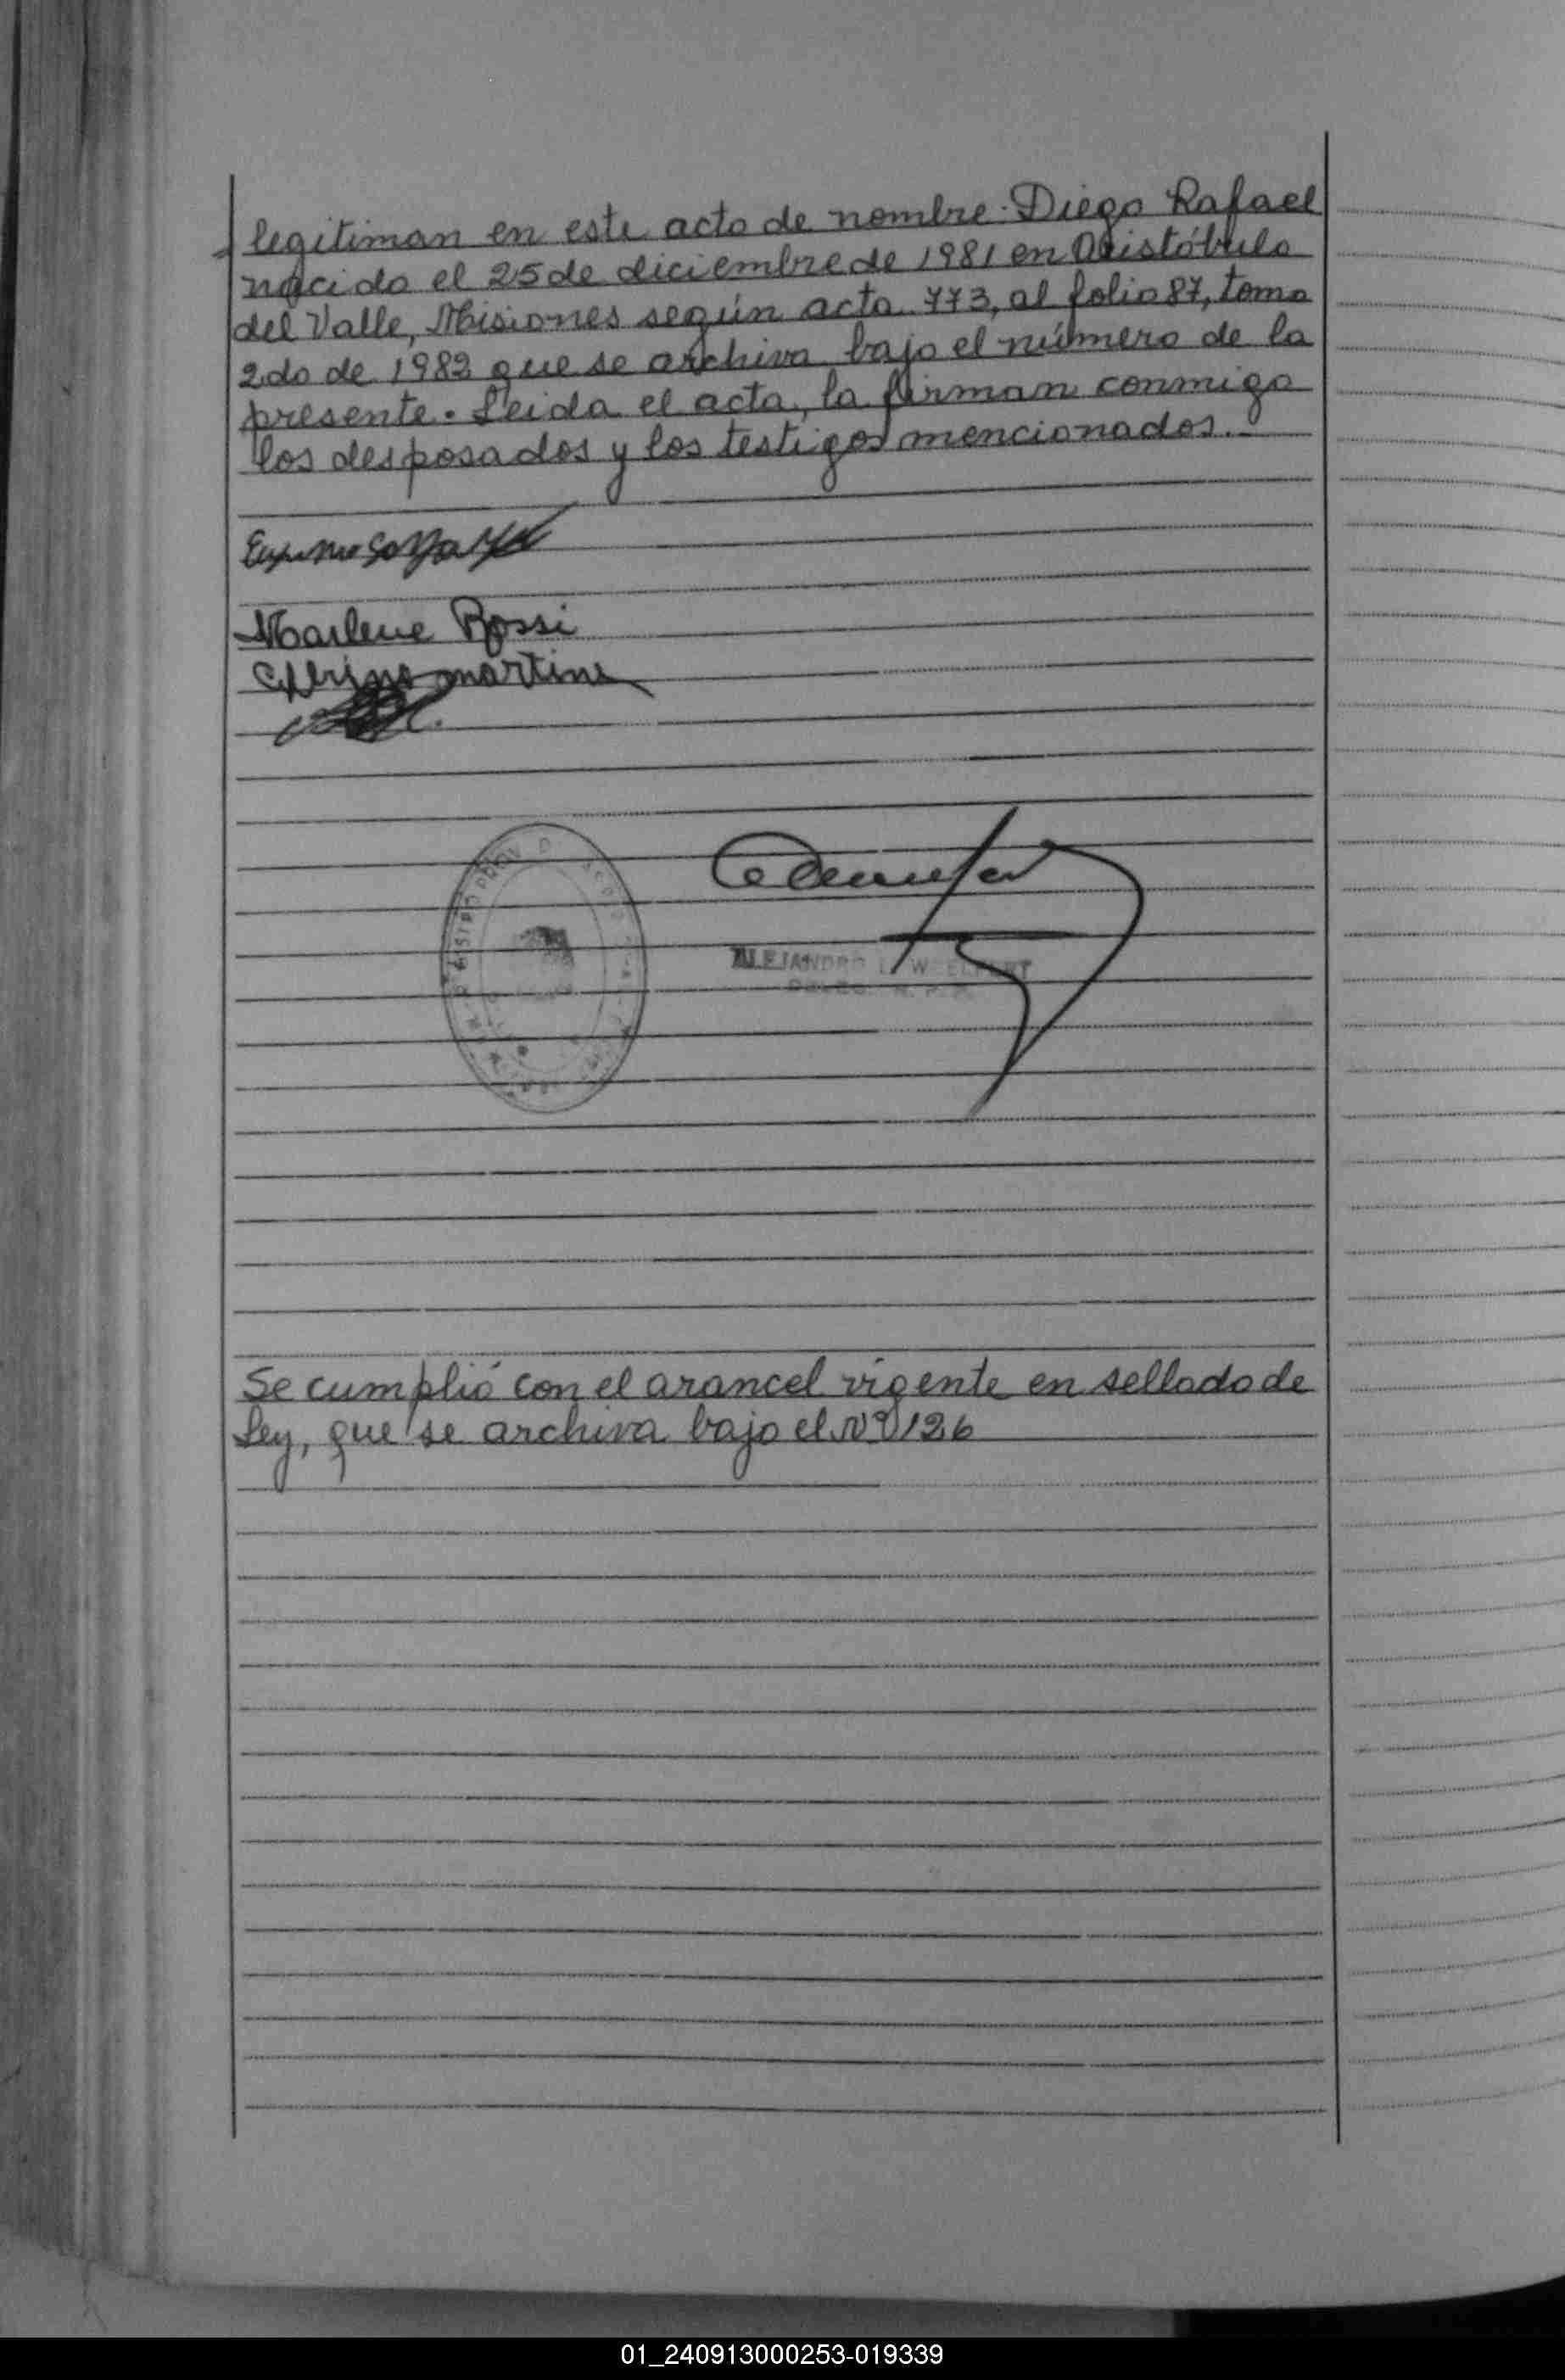 legitiman en este acto de nombre: Diego Rafael
nacido el 25 de diciembre de 1981 en Aristóbulo
del Valle, Misiones según acta 773, al folio 87, tomo
2do de 1982 que se archiva bajo el número de la
presente. Leida el acta, la firman conmigo
los desposados y los testigos mencionados.-
Marlene Rossi
martine
ALEJANDRO
Se cumplió con el arancel vigente en sellado de
Ley, que se archiva bajo el Nº 126
01_240913000253-019339